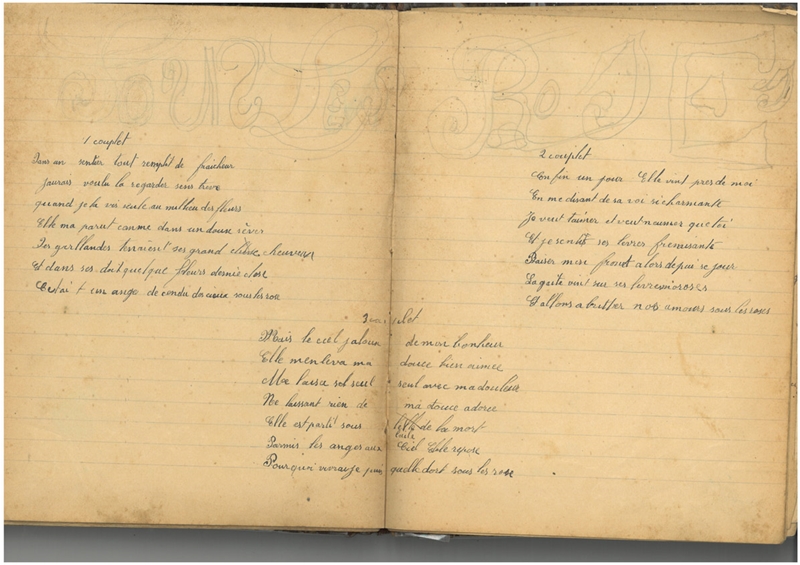 SOUS LES ROSES
1 couplet
Dans un sentier tout remplit de fraicheur
Jaurais voulu la regarder sens trève
quand je la vis seule au milieu des fleurs
Elle ma parut comme dans un doux rêver
Des guillandes tenaient ses grand cheveux
Et dans ses doit quelque flours demie close
Cetai t un ange de sous les rose
2 couplet
En fin un jour Elle vint pres de moi
En me disant de sa voi si charmante
Je veut taimer et veut naimer que toi
Et je sentit ses levres fremisante
Baiser mon front alors depui se jour
La gaite vint sur ses levres moroses
Et allons abritter nos amours sous les roses
3 couplet
Mais le ciel jaloux de mon bonheur
Elle menleva ma douce bien aimée
Me laissa seul seul avec ma douleur
Ne laissant rien de ma douce adorée
Elle est parti sous de la mort
Parmis les anges aux Ciel Elle repose
Pourquoi vivrai je quelle dort sous les rose